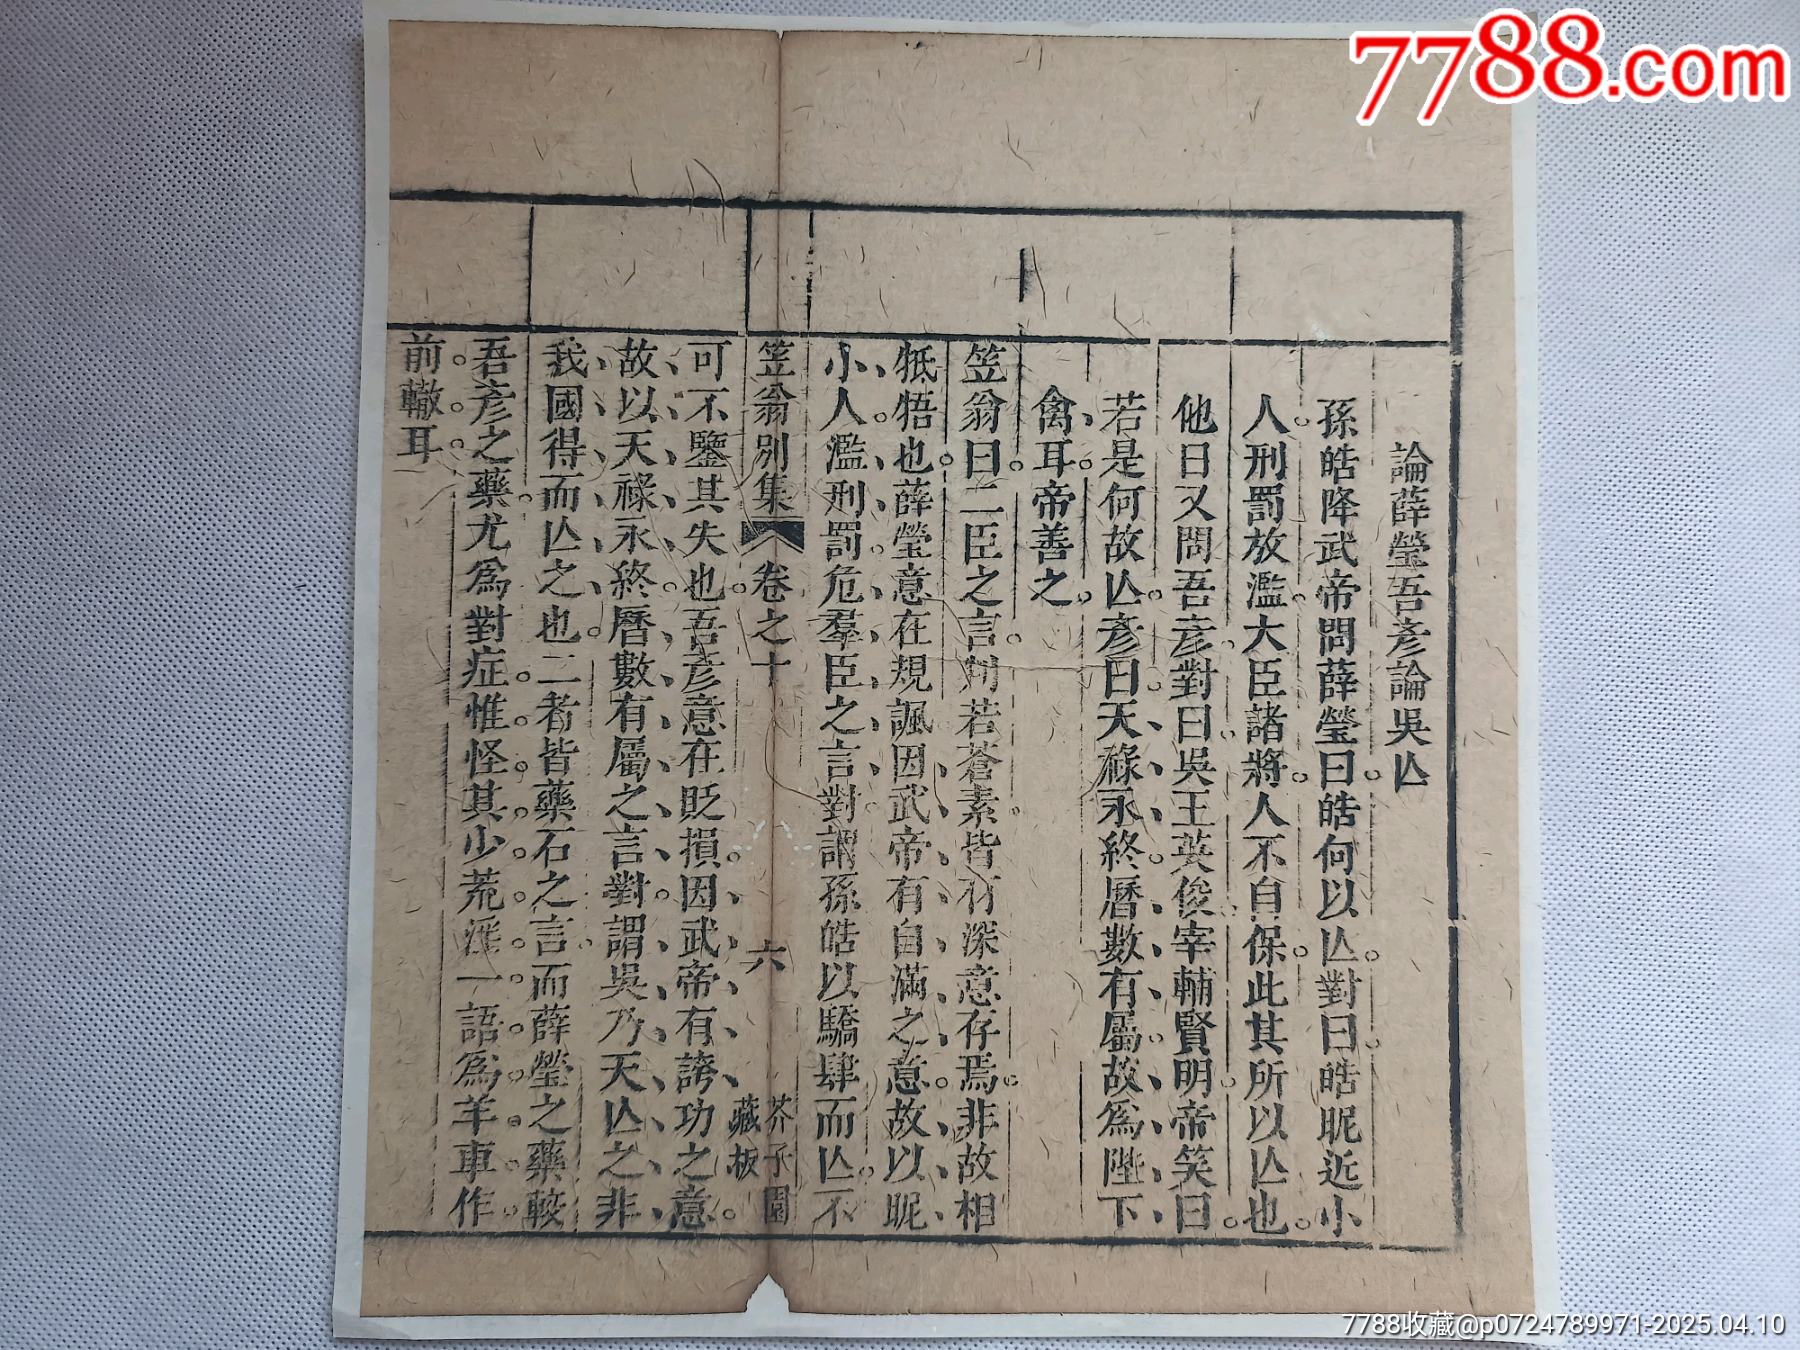 7788.com
論薛瑩吾彥論吳亾
孫皓降武帝問薛瑩曰皓何以亾對曰皓昵近小
人刑罰放濫大臣諸將人不自保此其所以亾也
他日又問吾彥對曰吳王英俊宰輔賢明帝笑曰
若是何故亾彥曰天祿永終曆數有屬故爲陛下
禽耳帝善之
笠翁曰二臣之言判若蒼素皆有深意存焉非故相
牴牾也薛瑩意在規諷因武帝有自滿之意故以昵
小人濫刑罰危羣臣之言對謂孫皓以驕肆而亾不
笠翁別集 卷之十 六 芥子園藏板
可不鑒其失也吾彥意在貶損因武帝有誇功之意
故以天祿永終曆數有屬之言對謂吳乃天亾之非
我國得而亾之也二者皆藥石之言而薛瑩之藥較
吾彥之藥尤爲對症惟怪其少荒淫一語爲羊車作
前轍耳
7788收藏@p0724789971-2025.04.10